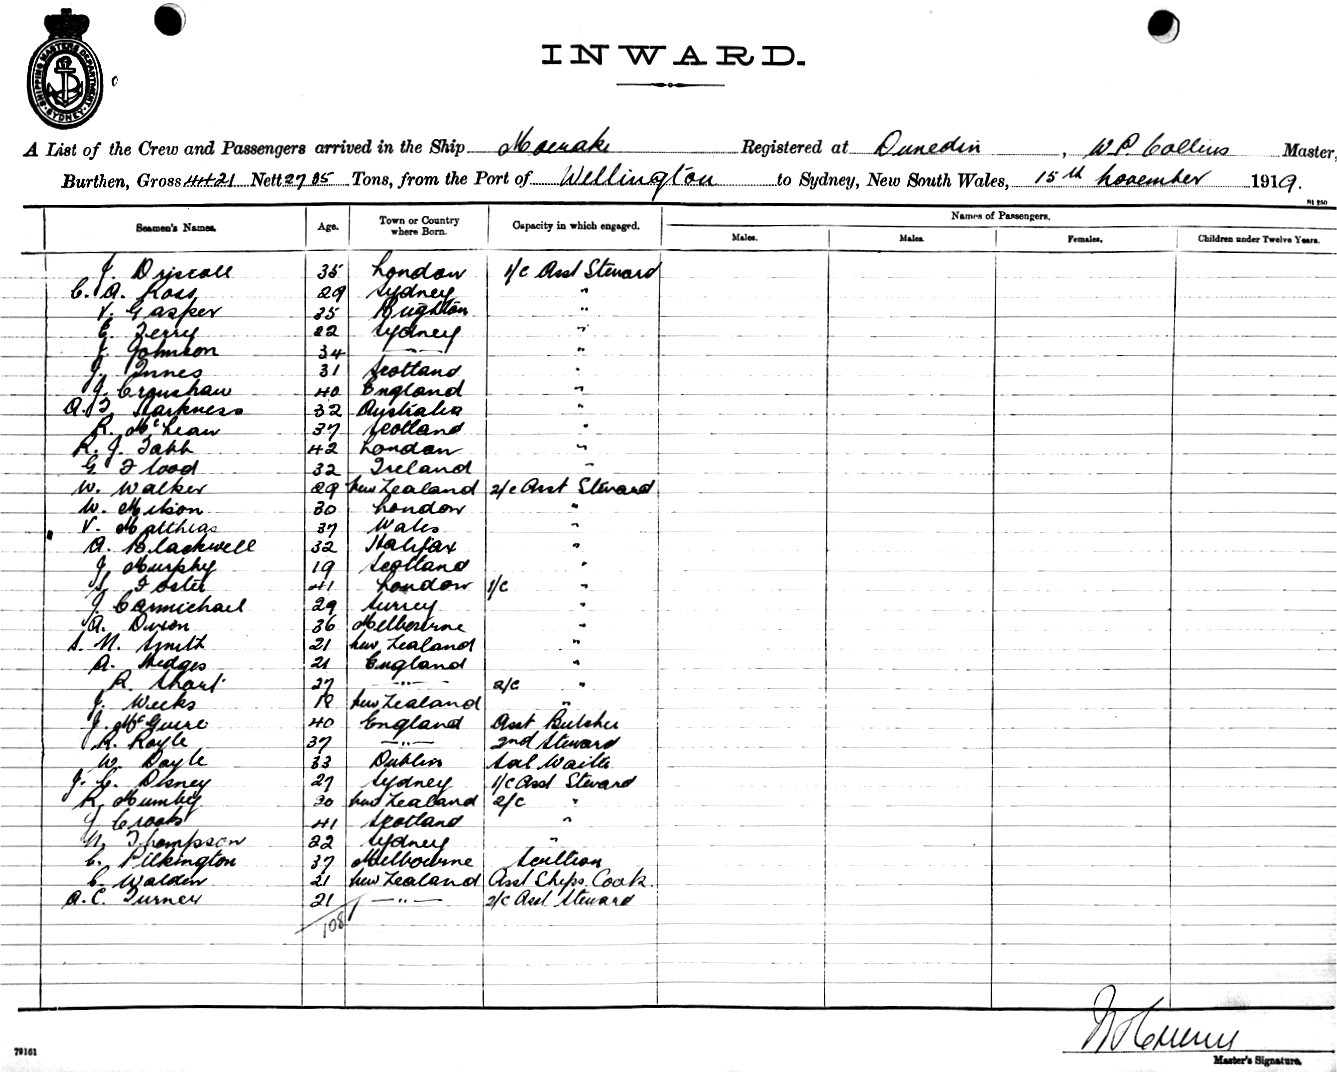 SHIPPING MASTERS DEPARTMENT
SYDNEY
INWARD.
A List of the Crew and Passengers arrived in the Ship Moeraki Registered at Dunedin, W.P. Collins Master,
Burthen, Gross 4421 Nett 2785 Tons, from the Port of Wellington to Sydney, New South Wales, 15th November 1919.
St 250
Seamen's Names. Age. Town or Country where Born. Capacity in which engaged. Names of Passengers.
Males. Males. Females. Children under Twelve Years.
J. Driscoll 35 London 1/c Asst Steward
C. A. Ross 29 Sydney "
V. Gasper 35 Brighton "
E. Terry 22 Sydney "
J. Johnson 34 —"— "
J. Innes 31 Scotland "
J. Crenshaw 40 England "
A. J. Harkness 32 Australia "
R. McLean 37 Scotland "
R. J. Tabb 42 London "
G. Flood 32 Ireland "
W. Walker 29 New Zealand 2/c Asst Steward
W. Milson 30 London "
V. Matthias 37 Wales "
A. Blackwell 32 Halifax "
J. Murphy 19 Scotland "
S. Foster 41 London 1/c "
J. Carmichael 29 Surrey "
A. Dixon 36 Melbourne "
S. N. Smith 21 New Zealand "
A. Hedges 21 England "
R. Short 27 —"— 2/c "
J. Weeks 18 New Zealand "
J. McGuire 40 England Asst Butcher
R. Royle 37 —"— 2nd Steward
W. Doyle 33 Dublin Sal Waiter
J. C. Disney 27 Sydney 1/c Asst Steward
R. Mumby 30 New Zealand 2/c "
J. Crooks 41 Scotland "
N. Thompson 22 Sydney "
C. Pilkington 37 Melbourne Scullion
C. Walden 21 New Zealand Asst Ships Cook.
A. C. Turner 21 —"— 2/c Asst Steward
108
79161
Master's Signature.